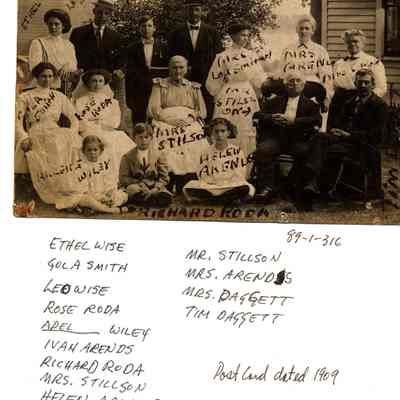 ETHEL
MRS.
ARENDS
ROSE
RODA
MRS.
STILLSON
MR.
STILSON
HELEN
ARENDS
WILEY
RICHARD RODA
89-1-316
ETHEL WISE
GOLA SMITH
LEO WISE
ROSE RODA
OREL WILEY
IVAN ARENDS
RICHARD RODA
MRS. STILLSON
HELEN
MR. STILLSON
MRS. ARENDS
MRS. DAGGETT
TIM DAGGETT
Post Card dated 1909